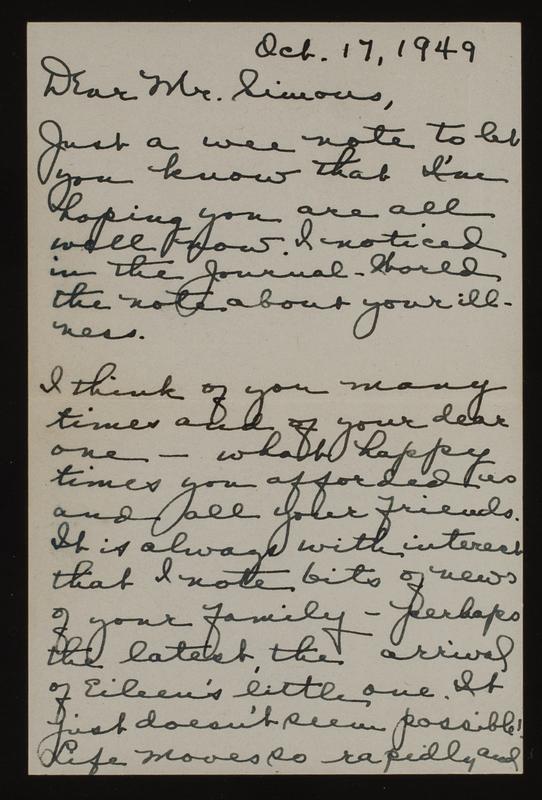 Oct. 17, 1949
Dear Mr. Simons,
Just a wee note to let
you know that I'm
hoping you are all
well now. I noticed
in the Journal-World
the note about your ill-
ness.
I think of you many
times and of your dear
one — what happy
times you afforded us
and all your friends.
It is always with interest
that I note bits of news
of your family - perhaps
the latest, the arrival
of Eileen's little one. It
just doesn't seem possible!
Life moves so rapidly and